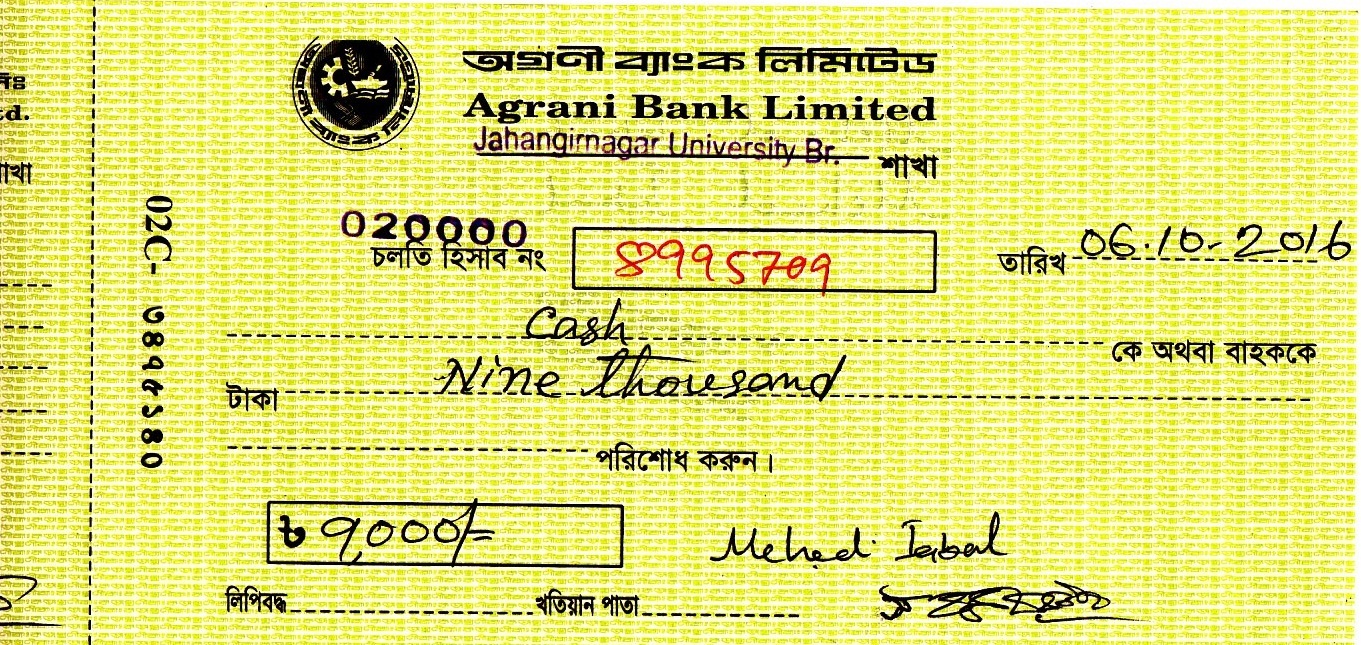 অগ্রণী ব্যাংক লিমিটেড
Agrani Bank Limited
Jahangirnagar University Br. শাখা
020000
চলতি হিসাব নং 8995709 তারিখ 06.10-2016
02C- ৩৪৭৫১৪০
Cash কে অথবা বাহককে
টাকা Nine thousand
পরিশোধ করুন।
৳ 9,000/=
Mehedi Iqbal
লিপিবদ্ধ খতিয়ান পাতা